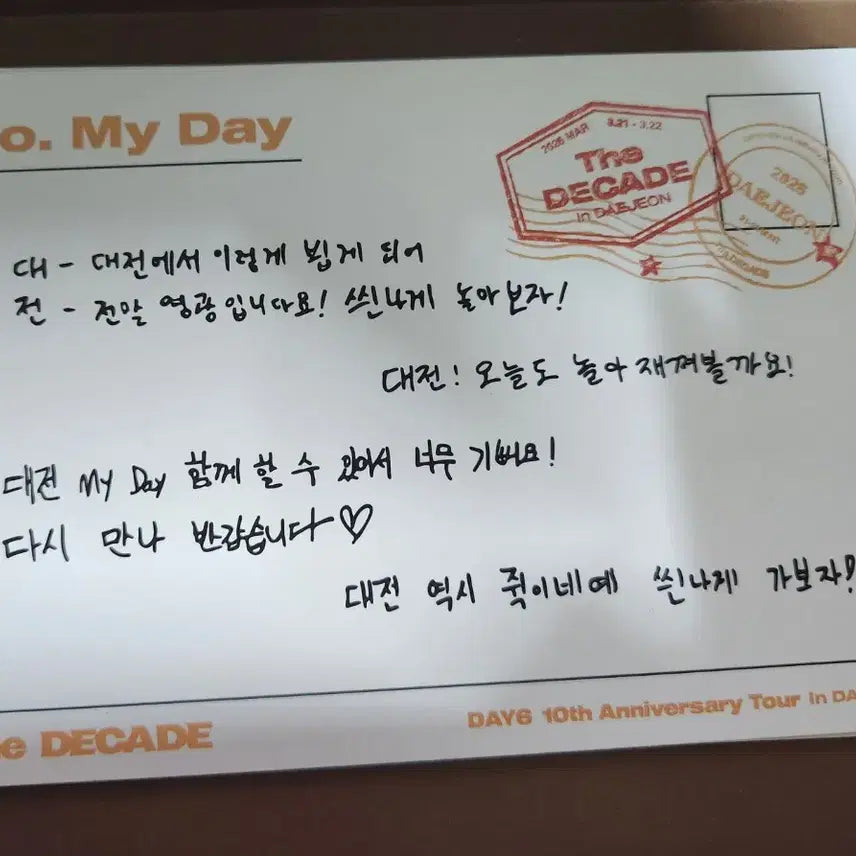 o. My Day
2026 MAR 3.21 - 3.22
The
DECADE
in DAEJEON
2026
DAEJEON
대 - 대전에서 이렇게 뵙게 되어
전 - 전말 영광입니다요! 씐나게 놀아보자!
대전! 오늘도 놀아 재껴볼까요!
대전 My Day 함께 할 수 있어서 너무 기뻐요!
다시 만나 반갑습니다♡
대전 역시 쥑이네예 씐나게 가보자!
e DECADE
DAY6 10th Anniversary Tour in DA